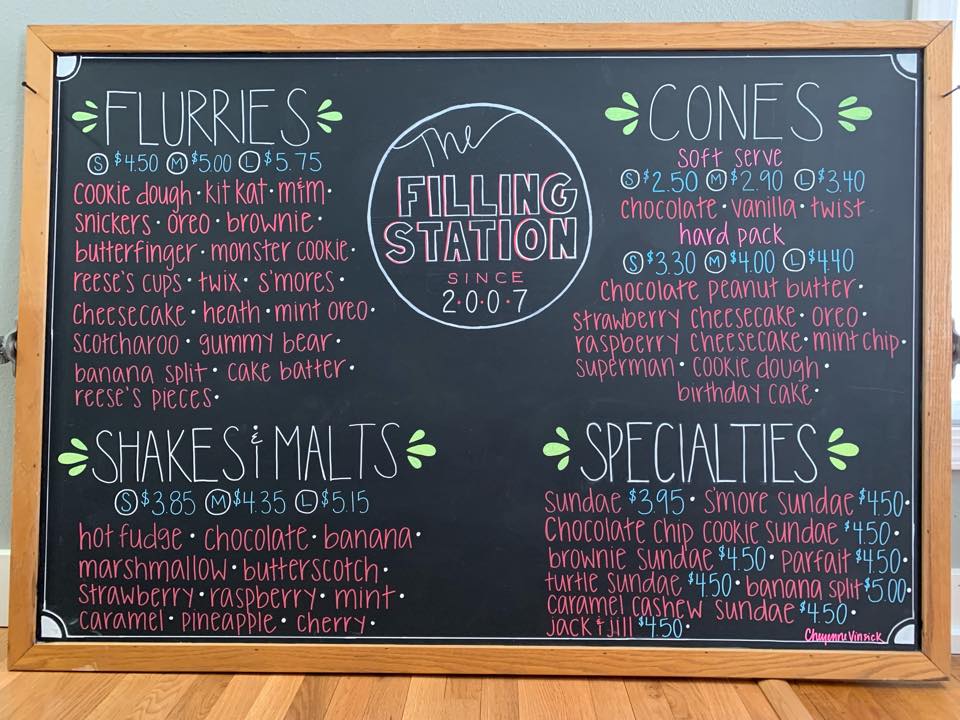 FLURRIES
S $4.50 M $5.00 L $5.75
cookie dough · kit kat · m&m ·
snickers · oreo · brownie ·
butterfinger · monster cookie ·
reese's cups · twix · s'mores ·
cheesecake · heath · mint oreo ·
scotcharoo · gummy bear ·
banana split · cake batter ·
reese's pieces ·
The
FILLING
STATION
SINCE
2·0·0·7
CONES
soft serve
S $2.50 M $2.90 L $3.40
chocolate · vanilla · twist
hard pack
S $3.30 M $4.00 L $4.40
chocolate peanut butter ·
strawberry cheesecake · oreo ·
raspberry cheesecake · mint chip ·
superman · cookie dough ·
birthday cake ·
SHAKES & MALTS
S $3.85 M $4.35 L $5.15
hot fudge · chocolate · banana ·
marshmallow · butterscotch ·
strawberry · raspberry · mint ·
caramel · pineapple · cherry ·
SPECIALTIES
sundae $3.95 · S'more sundae $4.50 ·
Chocolate chip cookie sundae $4.50 ·
brownie sundae $4.50 · parfait $4.50 ·
turtle sundae $4.50 · banana split $5.00 ·
caramel cashew sundae $4.50 ·
jack & jill $4.50 ·
Cheyenne Vinsick